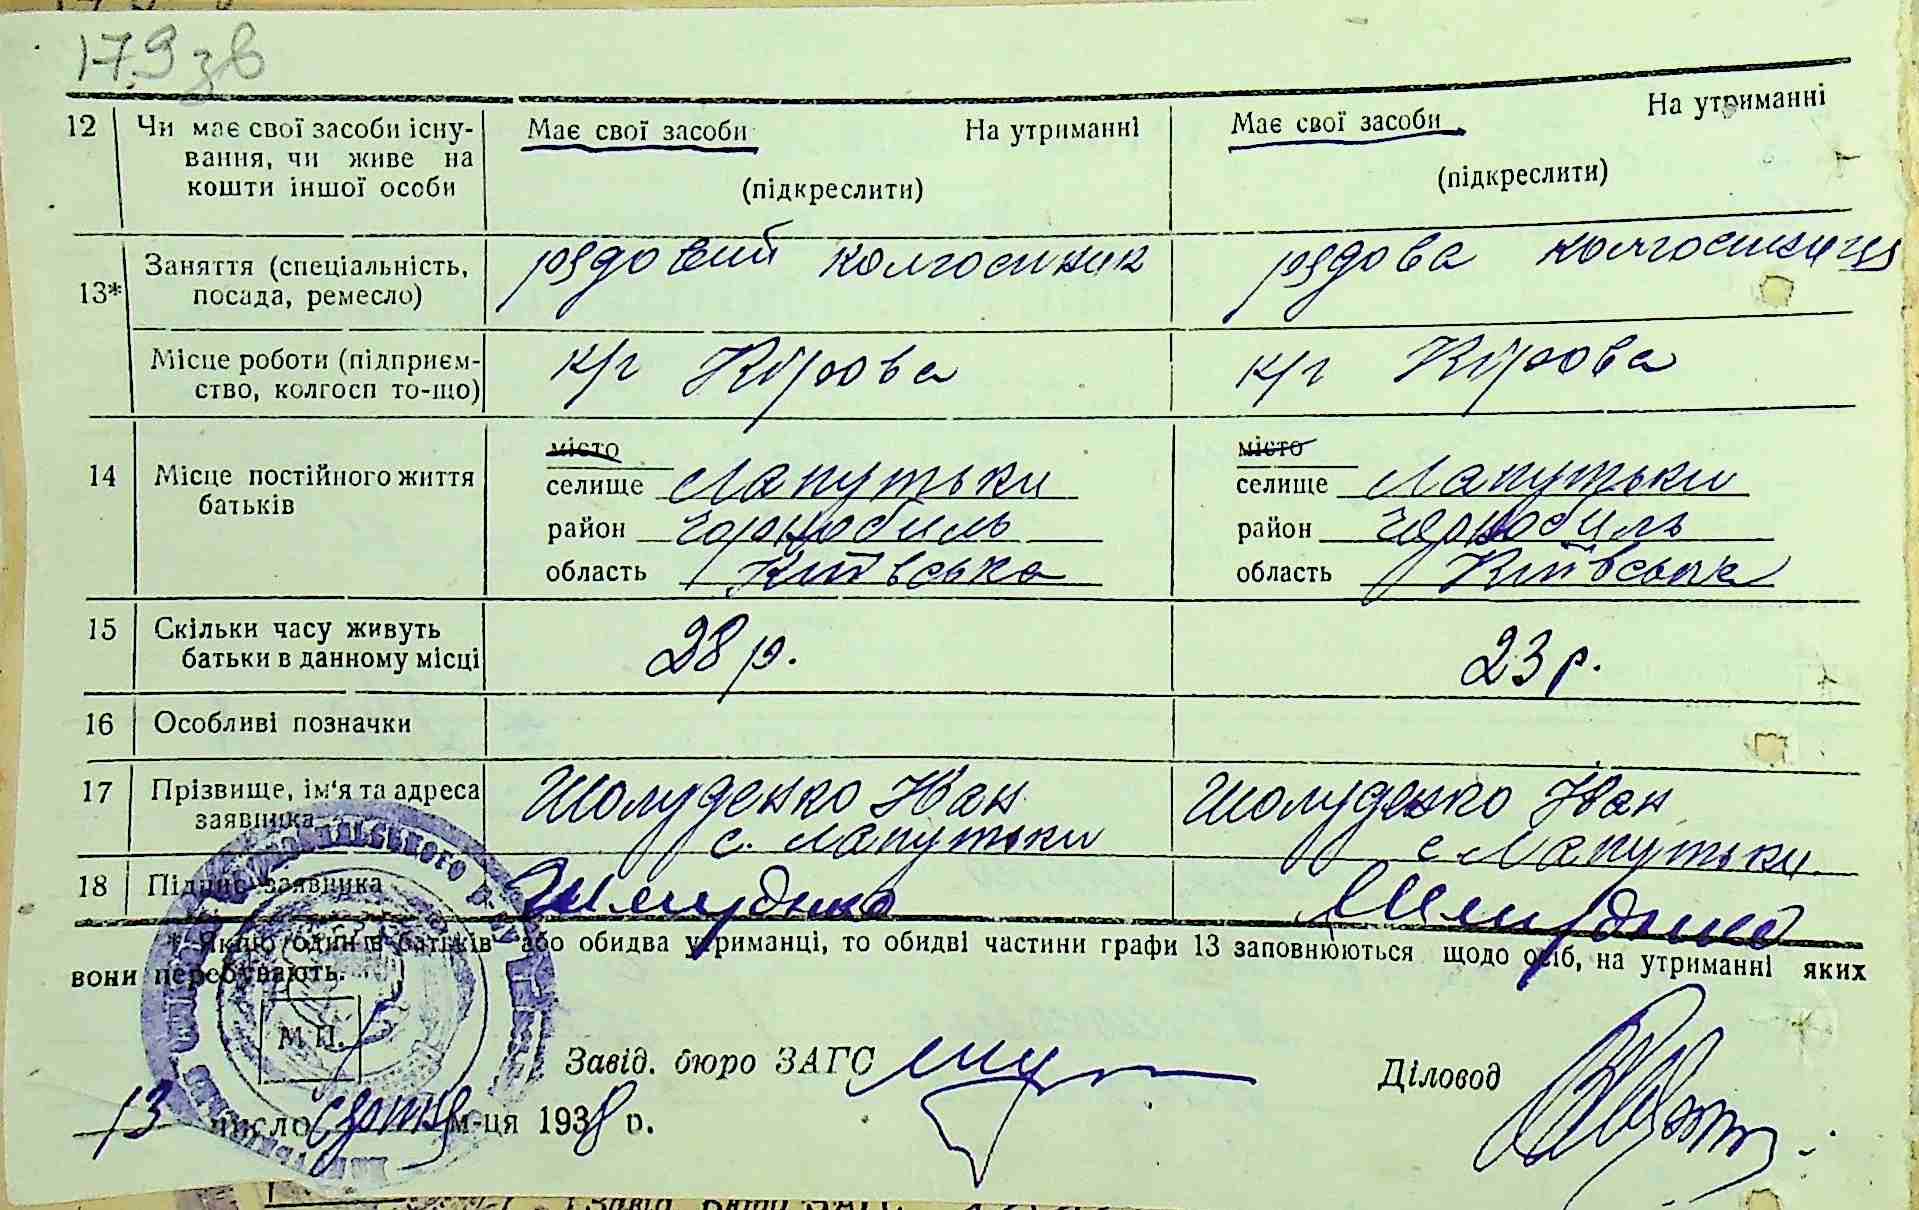 179 зв
12 Чи має свої засоби існу- Має свої засоби На утриманні Має свої засоби На утриманні
вання, чи живе на
кошти іншої особи (підкреслити) (підкреслити)
13* Заняття (спеціальність, рядовий колгоспник рядова колгоспниця
посада, ремесло)
Місце роботи (підприєм- к/г Кірова к/г Кірова
ство, колгосп то-що)
місто місто
14 Місце постійного життя селище Лапутьки селище Лапутьки
батьків район Чорнобиль район Чорнобиль
область Київська область Київська
15 Скільки часу живуть 28 р. 23 р.
батьки в данному місці
16 Особливі позначки
17 Прізвище, ім'я та адреса Шолуденко Іван Шолуденко Іван
заявника с. Лапутьки с Лапутьки
18 Підпис заявника
* Якщо один із батьків або обидва утриманці, то обидві частини графи 13 заповнюються щодо осіб, на утриманні яких
вони перебувають.
М П.
Завід. бюро ЗАГС Діловод
13 число м-ця 1938 р.